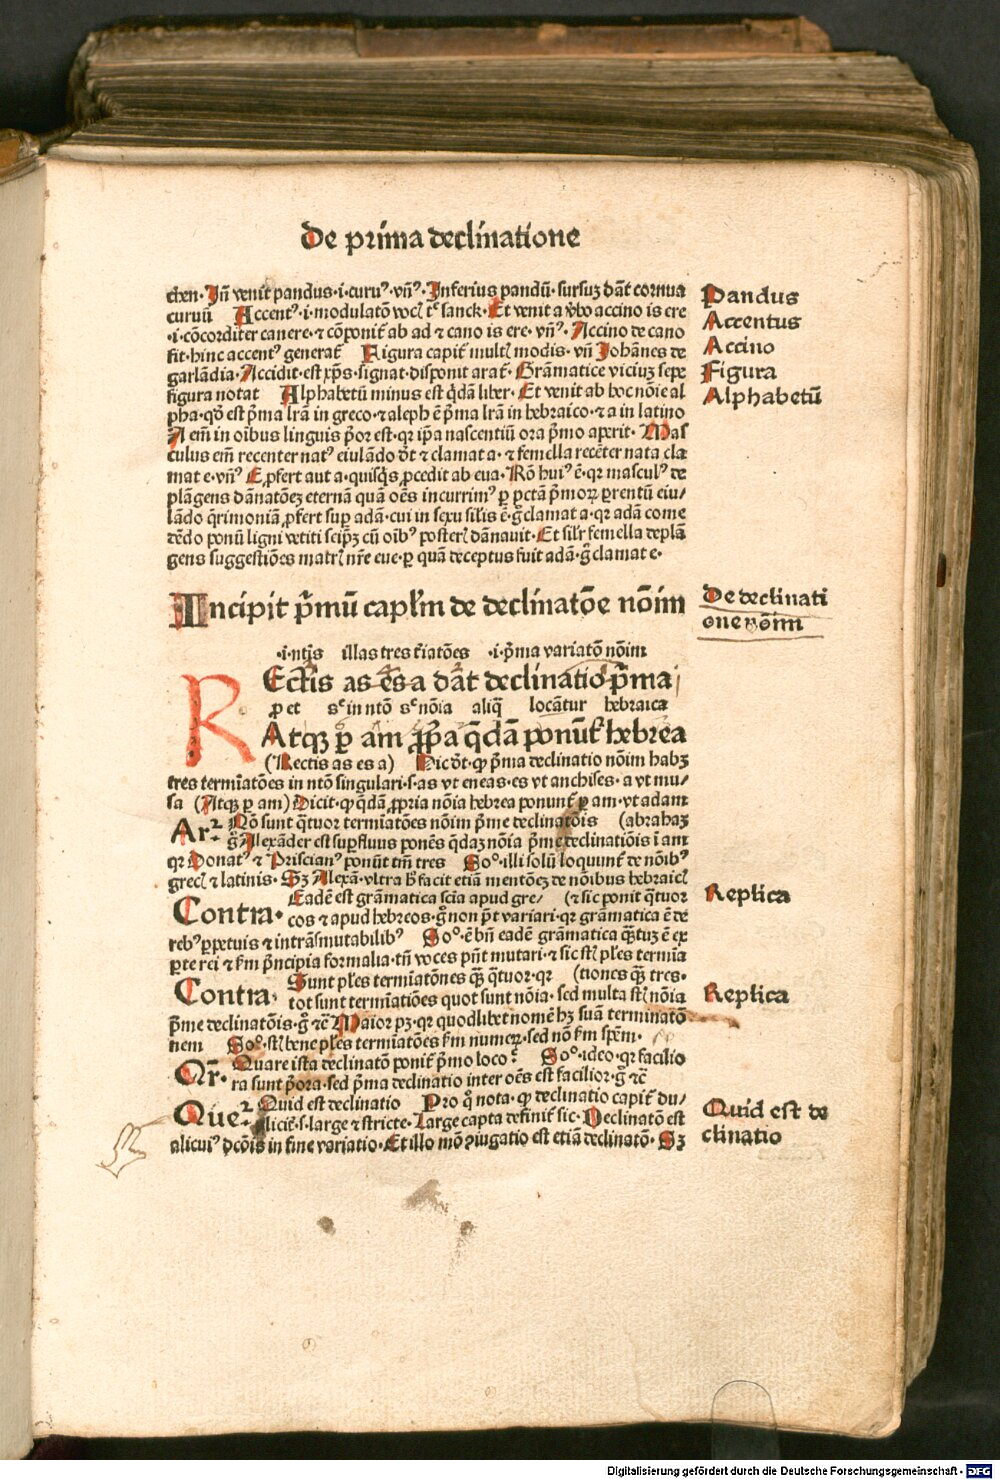 De prima declinatione
chen. Jn̄ venit pandus.i.curuꝰ.vn̄ꝰ. Inferius pandū.sursuꝫ dāt cornua
Pandus
curuū Accentꝰ.i.modulatō vocꝭ tͤ sanck. Et venit a v̓bo accino is ere
Accentus
.i.cōcorditer canere.⁊ cōponit̄ ab ad ⁊ cano is ere.vn̄ꝰ. Accino de cano
Accino
fit.hinc accentꝰ generat̄ Figura capit̄ multꝭ modis.vn̄ Johānes de
Figura
garlādia. Accidit.est xp̄s.signat.disponit arat̄. Grāmatice viciuꝫ sepe
figura notat Alphabetū minus est q̄dā liber. Et venit ab hoc nōie al
Alphabetū
pha.qđ est p̄ma lr̄a in greco.⁊ aleph ē p̄ma lr̄a in hebraico.⁊ a in latino
A em̄ in oībus linguis p̄or est.qr ip̄a nascentiū ora p̄mo aperit. Mas
culus em̄ recenter natꝰ eiulādo dt̄ ⁊ clamat a.⁊ femella recēter nata cla
mat e.vn̄ꝰ E ꝓfert aut a.quisq̄s ꝓcedit ab eua. Rō huiꝰ ē.qr masculꝰ de
plāgens dānatōeꝫ eternā quā oēs incurrimꝰ ꝑ pctā p̄moꝝ ꝑentū eiu/
lādo q̄rimoniā ꝓfert suꝑ adā.cui in sexu sil̄is ē.ḡ clamat a.qr adā come
dēdo ponū ligni vetiti seip̄ꝫ cū oībꝰ posterꝭ dānauit. Et sil̄r femella deplā
gens suggestiōes matrꝭ nr̄e eue.ꝑ quā deceptus fuit adā.ḡ clamat e.
Incipit p̄mū capl̄m de declinatōe nōim
De declinati
one nōim
.i.ntīs illas tres t̄iatōes .i.p̄ma variatō nōim
REctis as es a dāt declinatio p̄ma
ꝓ et sͨ in ntō sͨ nōia aliq̄ locātur hebraica
Atqꝫ ꝑ am ꝓp̄a q̄dā ponūt̄ hebrea
(Rectis as es a) Dic̄ōt.qꝙ p̄ma declinatio nōim habꝫ
tres termīatōes in ntō singulari.s.as vt eneas.es vt anchises.a vt mu/
sa (Atqꝫ ꝑ am) Dicit.qꝙ q̄dā ꝓpria nōia hebrea ponunt̄ ꝑ am.vt adam
Ar² Nō sunt q̄tuor termīatōes nōim p̄me declinatōis (abrahaꝫ
ḡ Alexāder est suꝑfluus ponēs q̄daꝫ nōia p̄me declinatiōis ī am
qr Donatꝰ ⁊ Priscianꝰ ponūt tm̄ tres Soº.illi solū loquunt̄ de nōibꝰ
grecꝭ ⁊ latinis. Sꝫ Alexā.vltra b̄ facit etiā mentōeꝫ de nōibus hebraicꝭ
Eadē est grāmatica scīa apud gre/ (⁊ sic ponit q̄tuor
Replica
Contra. cos ⁊ apud hebreos.ḡ non p̄t variari.qr grāmatica ē de
rebꝰ ꝑpetuis ⁊ intrāsmutabilibꝰ Soº.ē bn̄ eadē grāmatica q̄tuꝫ ē ex
ꝑte rei ⁊ km̄ p̄ncipia formalia.tn̄ voces pn̄t mutari.⁊ sic stꝭ pl̄es termīa
Sunt pl̄es termīatōnes q̄ꝫ q̄tuor.qr (tiones q̄ꝫ tres.
Contra. tot sunt termīatiōes quot sunt nōia.sed multa stꝭ nōia
Replica
p̄me declinatōis.ḡ ⁊c̄ Maior pꝫ.qr quodlibet nomē hꝫ suā terminatō
nem Soº.stꝭ bene pl̄es termīatōes km̄ numeꝝ.sed nō km̄ spēm.
Qr̄. Quare ista declinatō ponit̄ p̄mo loco² Soº.ideo.qr facilio
ra sunt p̄ora.sed p̄ma declinatio inter oēs est facilior.ḡ ⁊c̄
Que² Quid est declinatio Pro q̊ nota.qꝙ declinatio capit̄ du/
Quid est de
plicit̄.s.large ⁊ stricte. Large capta definit̄ sic. Declinatō est
clinatio
alicuiꝰ dcōis in fine variatio. Et illo mō ꝯiugatio est etiā declinatō. Sꝫ
Digitalisierung gefördert durch die Deutsche Forschungsgemeinschaft - DFG